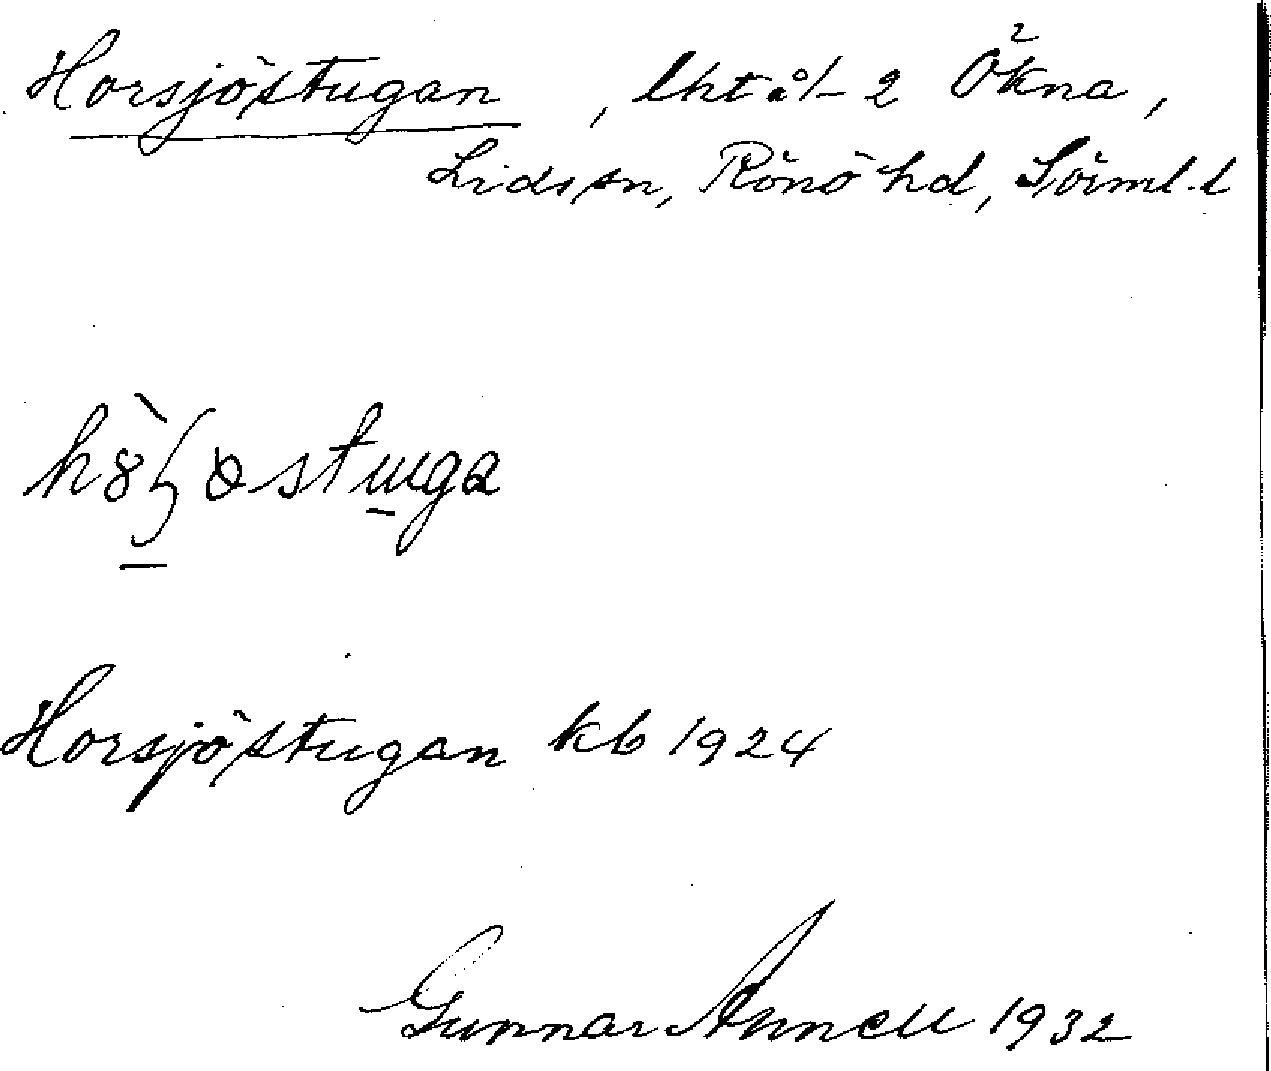 Horsjöstugan, lht å 1/2 Ökna,
Lids sn, Rönö hd, Söiml. l
Horsjöstugan kb 1924
Gunnar Annell 1932